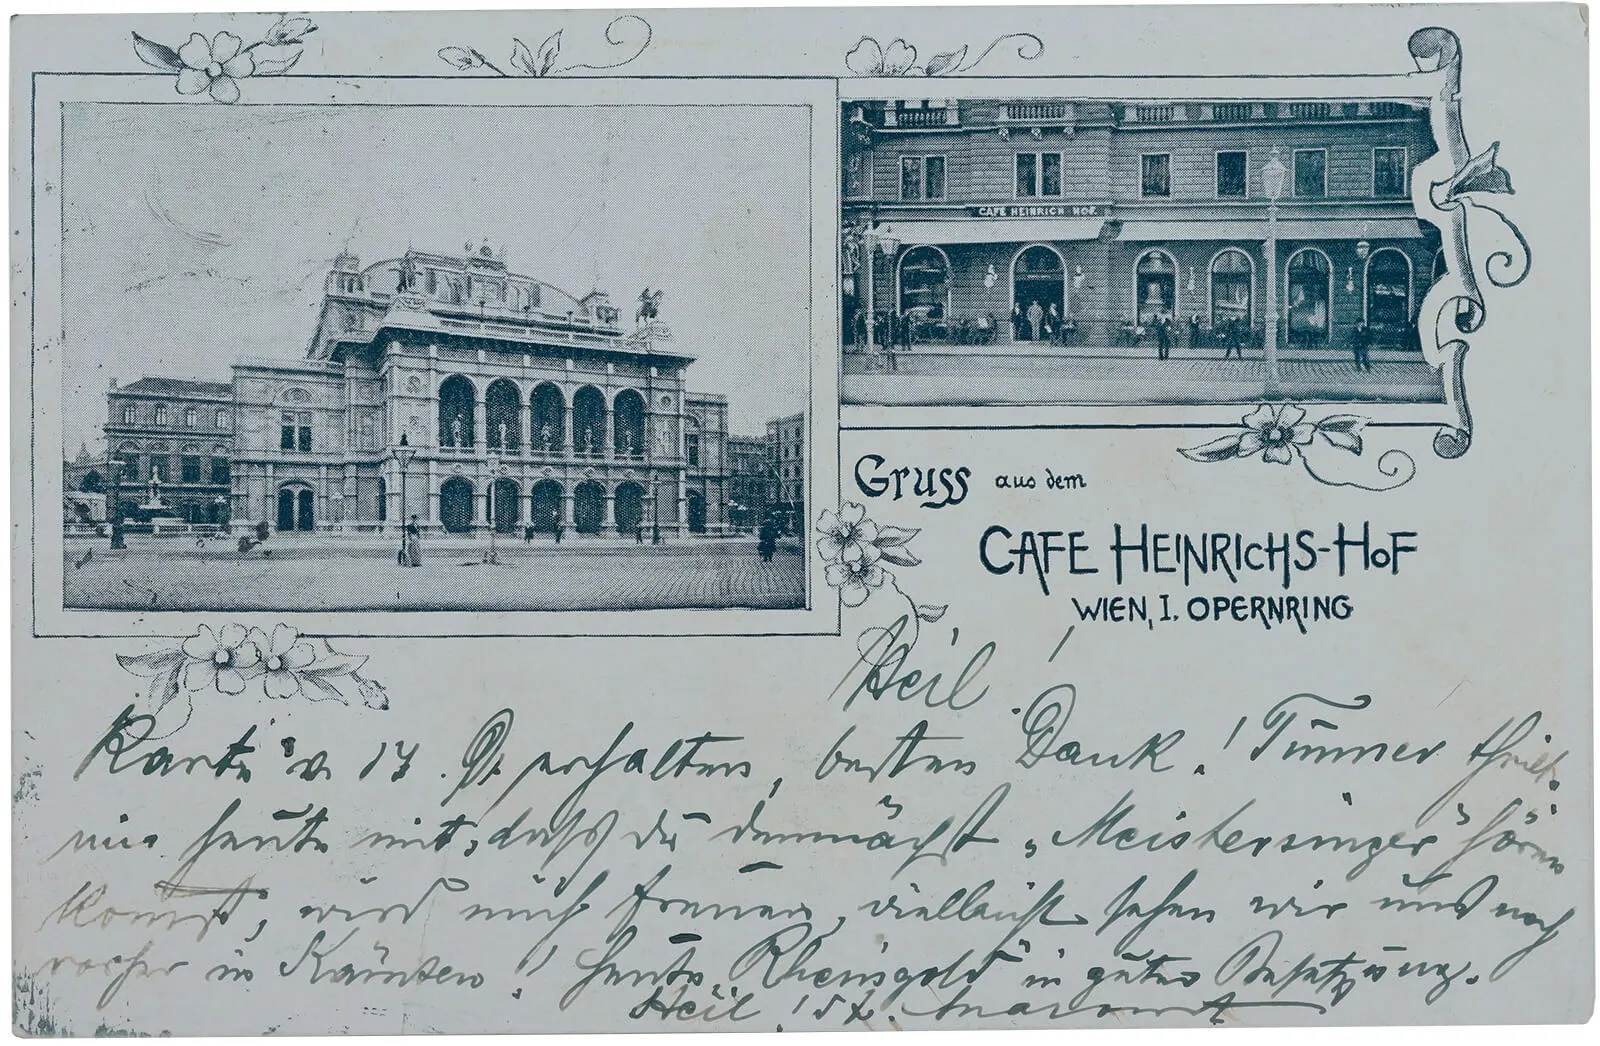 CAFÉ HEINRICH HOF.
Gruss aus dem
CAFE HEINRICHS-HOF
WIEN, I. OPERNRING
Heil!
Karte v. 17. erhalten, besten Dank! Timmer theilt
mir heute mit, daß du demnächst „Meistersinger" hören
kommst, wird mich freuen, vielleicht sehen wir uns noch
vorher in Kärnten! Heute „Rheingold" in guter Besetzung.
Heil!